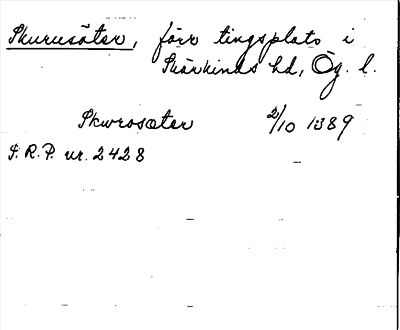 Skurusäter, förr tingsplats i
Skärkinds hd, Ög. l.
Skurosæter 2/10 1389
S.R.P. nr. 2428